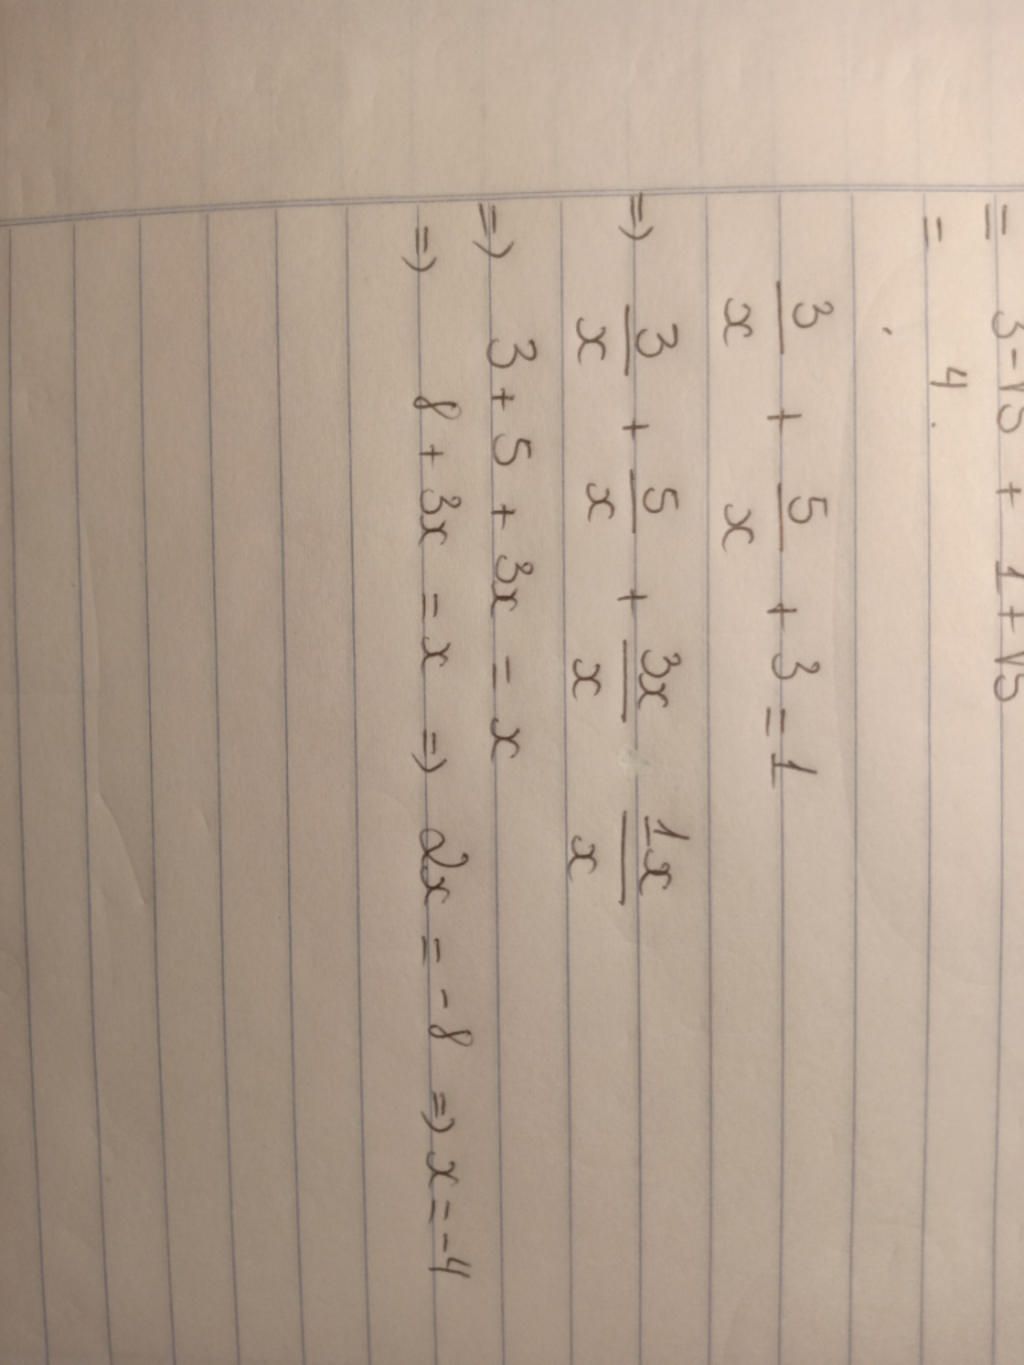 = 3-√5 + 1+√5
= 4
3/x + 5/x + 3 = 1
=) 3/x + 5/x + 3x/x 1x/x
=) 3 + 5 + 3x = x
=) 8 + 3x = x =) 2x = -8 =) x = -4